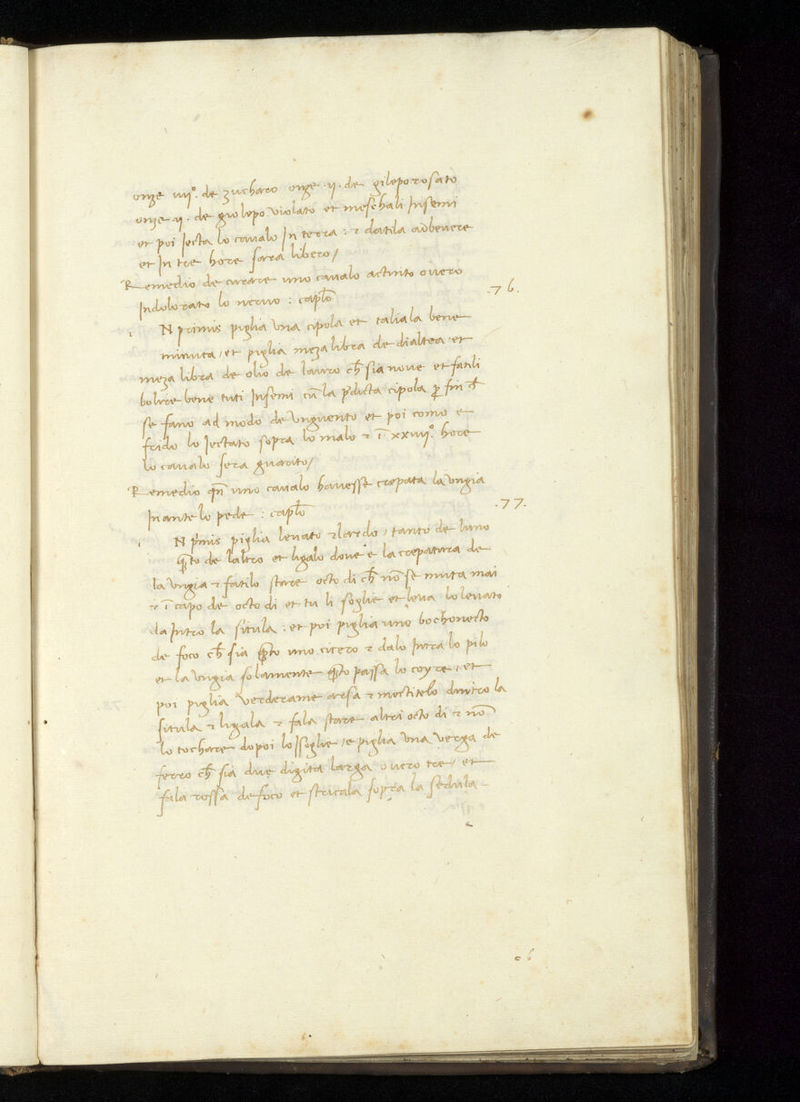 onze iiij°. de zucharo onze .ij. de gileporosato
onze .ij. de giolepo violato et meschali Insemi
et poi Iecta lo cavalo In terra : & datila adbevere
et In tre hore sara libero/
Remedio de curare uno cavalo actinto overo
Indolorato lo nervo : caplo
.76.
i N primis piglia una cipola et taliala bene
minuta / et piglia meza libra de dialtea / et
meza libra de olio de lauro ch̄ sia nove et fatili
bolire bene tuti Insemi cū la p̄dicta cipola ꝓ fin ch̄
se fano ad modo de unguento et poi como e
frido lo Iectato sopra lo malo & ī xxiiij°. hore
lo cavalo sera guarito/
Remedio qn̄ uno cavalo havesse crepata la ungia
Inante lo pede : caplo
.77.
i N p̄mis piglia levato & lardo / tanto de luno
qn̄to de laltro et ligalo dove e la crepatura de
la ungia & fatilo stare octo di ch̄ nō se muta mai
& ī capo de octo di et tu li soglie et leva lo levato
da Intro la situla : et poi piglia uno bochonecto
de foco ch̄ sia qn̄to uno cicero & dalo Intra lo pilo
et la ungia solamente qn̄to passa lo coyre / et
poi piglia verderame arsa & mectitelo dintro la
situla & ligala & fala stare altri octo di & nō
lo tochare dopoi lo ssoglie / e piglia una verga de
ferro ch̄ sia due digita larga overo tre / et
fala rossa de foco et stricala sopra la sedula